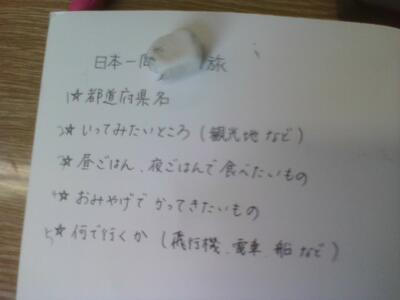 日本一周 旅
1☆都道府県名
2☆いってみたいところ(観光地など)
3☆昼ごはん、夜ごはんで食べたいもの
4☆おみやげでかってきたいもの
5☆何で行くか(飛行機、電車、船など)